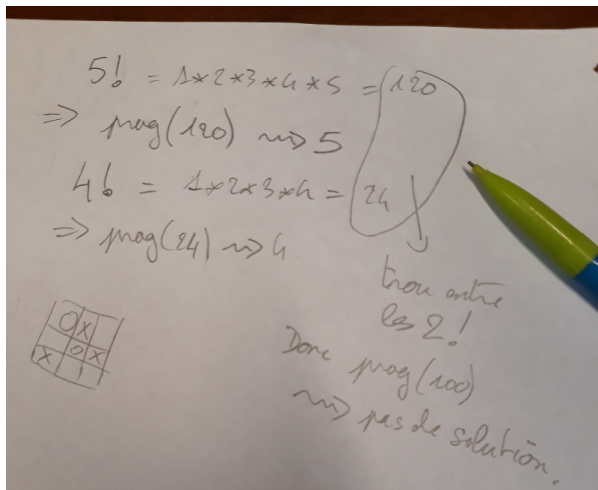 5! = 1*2*3*4*5 = 120
=> prog(120) ~~> 5
4! = 1*2*3*4 = 24
=> prog(24) ~~> 4
trou entre
les 2!
Donc prog(100)
~~> pas de solution.
O X
O X
X